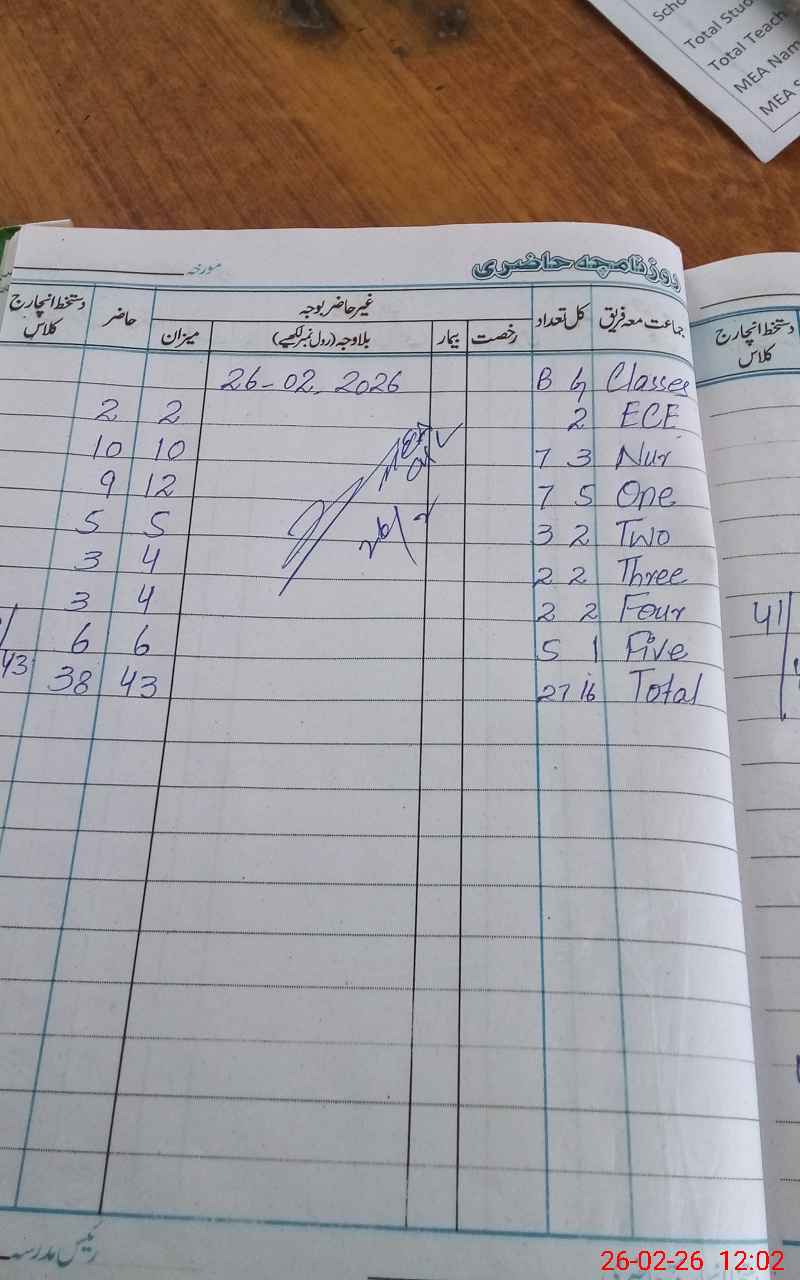 Scho
Total Stud
Total Teach
MEA Nam
MEA S
روزنامچہ حاضری
مورخہ
جماعت معہ فریق کل تعداد غیر حاضر بوجہ حاضر دستخط انچارج کلاس
رخصت بیمار بلاوجہ (رول نمبر لکھیے) میزان
دستخط انچارج
کلاس
26-02-2026 B G Classes
2 2 2 ECE
10 10 7 3 Nur
9 12 7 5 One
5 5 3 2 Two
3 4 2 2 Three
3 4 2 2 Four
6 6 5 1 Five
43 38 43 27 16 Total
41
رئیس مدرسہ
26-02-26 12:02